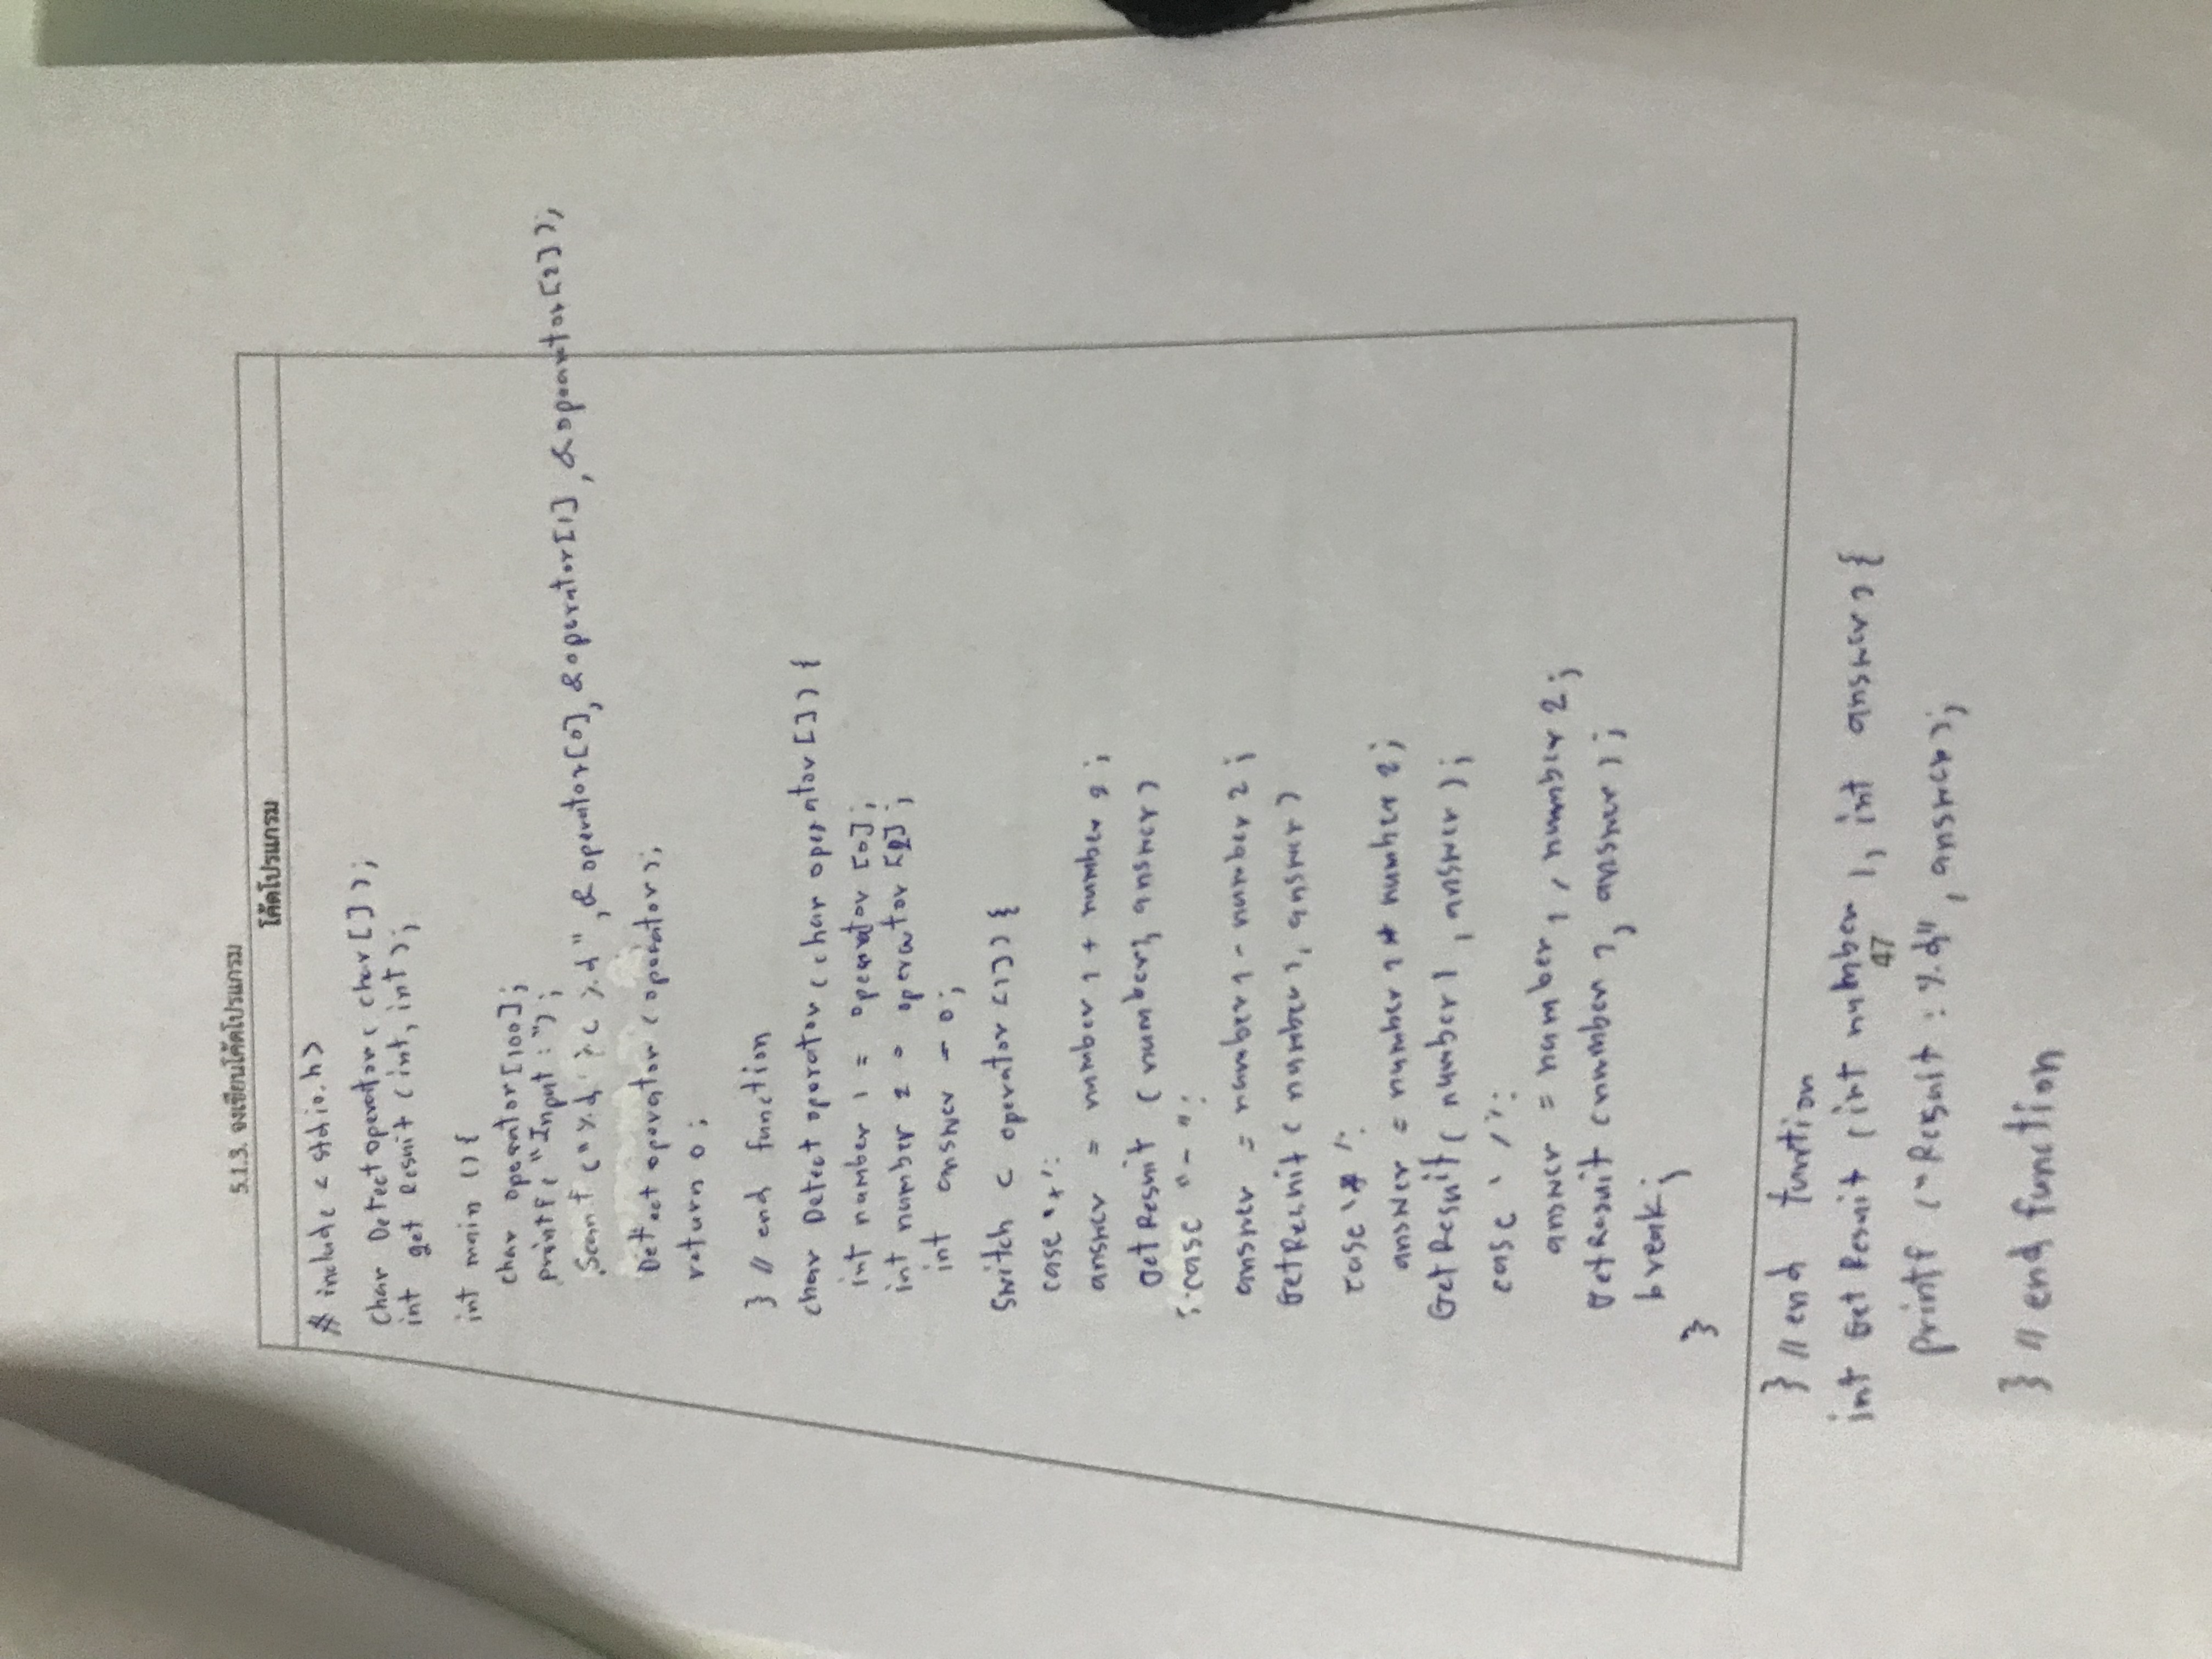 5.1.3. จงเขียนโค้ดโปรแกรม
โค้ดโปรแกรม
# include < stdio.h>
char Detect operator ( char [ ] );
int get Result (int, int );
int main () {
char operator [100];
printf( "Input : ");
Scanf ("%d %c %d", & operator[0], & operator[1], & operator[2]);
Detect operator ( operator );
return 0 ;
} // end function
char Detect operator ( char operator [ ] ) {
int number 1 = operator [0];
int number 2 = operator [2];
int answer = 0;
Switch ( operator [1] ) {
case '+':
answer = number 1 + number 2 ;
Get Result ( number1, answer )
case "-":
answer = number 1 - number 2 ;
Get Result ( number 1, answer )
case '*':
answer = number 1 * number 2 ;
Get Result ( number 1 , answer ) ;
case '/':
answer = number 1 / number 2;
Get Result ( number 1, answer ) ;
break;
}
} // end function
int Get Result (int number 1, int answer ) {
47
printf ("Result : %d" , answer );
} // end function